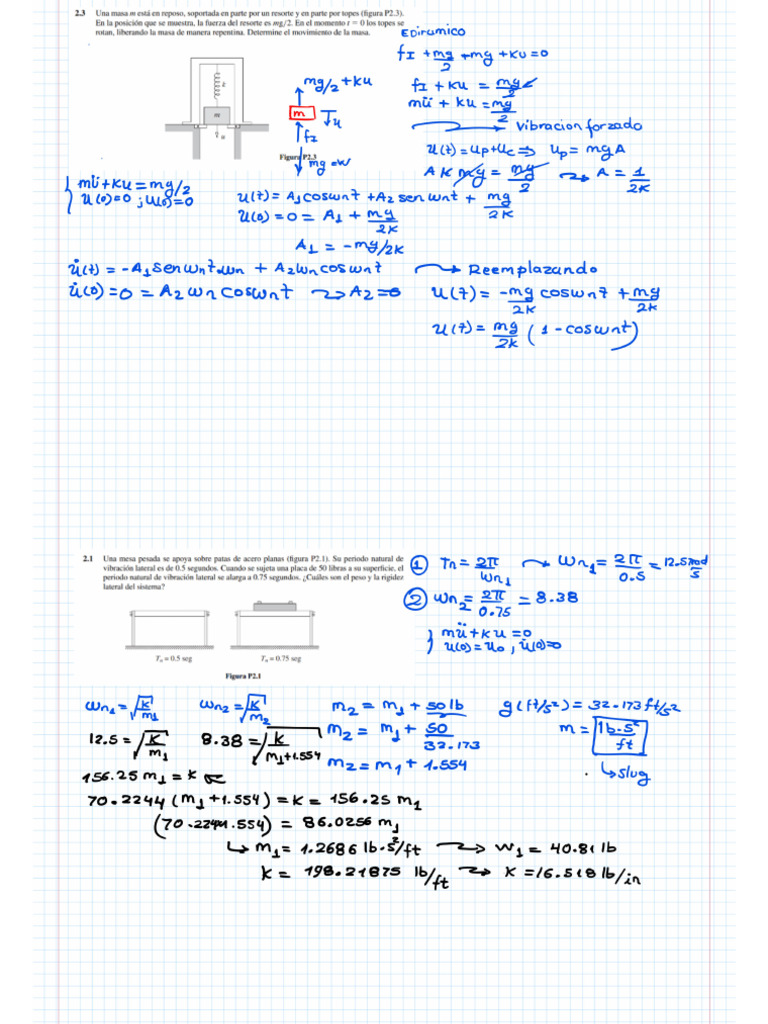 2.3 Una masa m está en reposo, soportada en parte por un resorte y en parte por topes (figura P2.3).
En la posición que se muestra, la fuerza del resorte es mg/2. En el momento t = 0 los topes se
rotan, liberando la masa de manera repentina. Determine el movimiento de la masa.
m
u
Figura P2.3
mg/2 + ku
m
u
fI
mg = w
fI + mg/2 - mg + ku = 0
fI + ku = mg/2
mü + ku = mg/2
Vibracion forzado
u(t) = up + uc => up = mgA
AKmg = mg/2
A = 1/2K
mü + ku = mg/2
u(0) = 0 ; u̇(0) = 0
u(t) = A1 coswnt + A2 sen wnt + mg/2K
u(0) = 0 = A1 + mg/2K
A1 = -mg/2K
u̇(t) = -A1 sen wnt.wn + A2wn cos wnt
u̇(0) = 0 = A2 wn coswnt
A2 = 0
Reemplazando
u(t) = -mg/2K coswnt + mg/2K
u(t) = mg/2K (1 - coswnt)
2.1 Una mesa pesada se apoya sobre patas de acero planas (figura P2.1). Su periodo natural de
vibración lateral es de 0.5 segundos. Cuando se sujeta una placa de 50 libras a su superficie, el
periodo natural de vibración lateral se alarga a 0.75 segundos. ¿Cuáles son el peso y la rigidez
lateral del sistema?
Tn = 0.5 seg
Tn = 0.75 seg
Figura P2.1
1 Tn = 2π/wn1
wn1 = 2π/0.5 = 12.5 rad/s
2 wn2 = 2π/0.75 = 8.38
mü + ku = 0
u(0) = u0 , u̇(0) = 0
wn1 = √K/m1
wn2 = √K/m2
m2 = m1 + 50 lb
g (ft/s²) = 32.173 ft/s²
12.5 = √K/m1
8.38 = √K/m1+1.554
m2 = m1 + 50/32.173
m = lb.s²/ft
m2 = m1 + 1.554
slug
156.25 m1 = K
70.2244 (m1 + 1.554) = K = 156.25 m1
= 86.0256 m1
m1 = 1.2686 lb.s²/ft
w1 = 40.81 lb
K = 198.21875 lb/ft
K = 16.518 lb/in